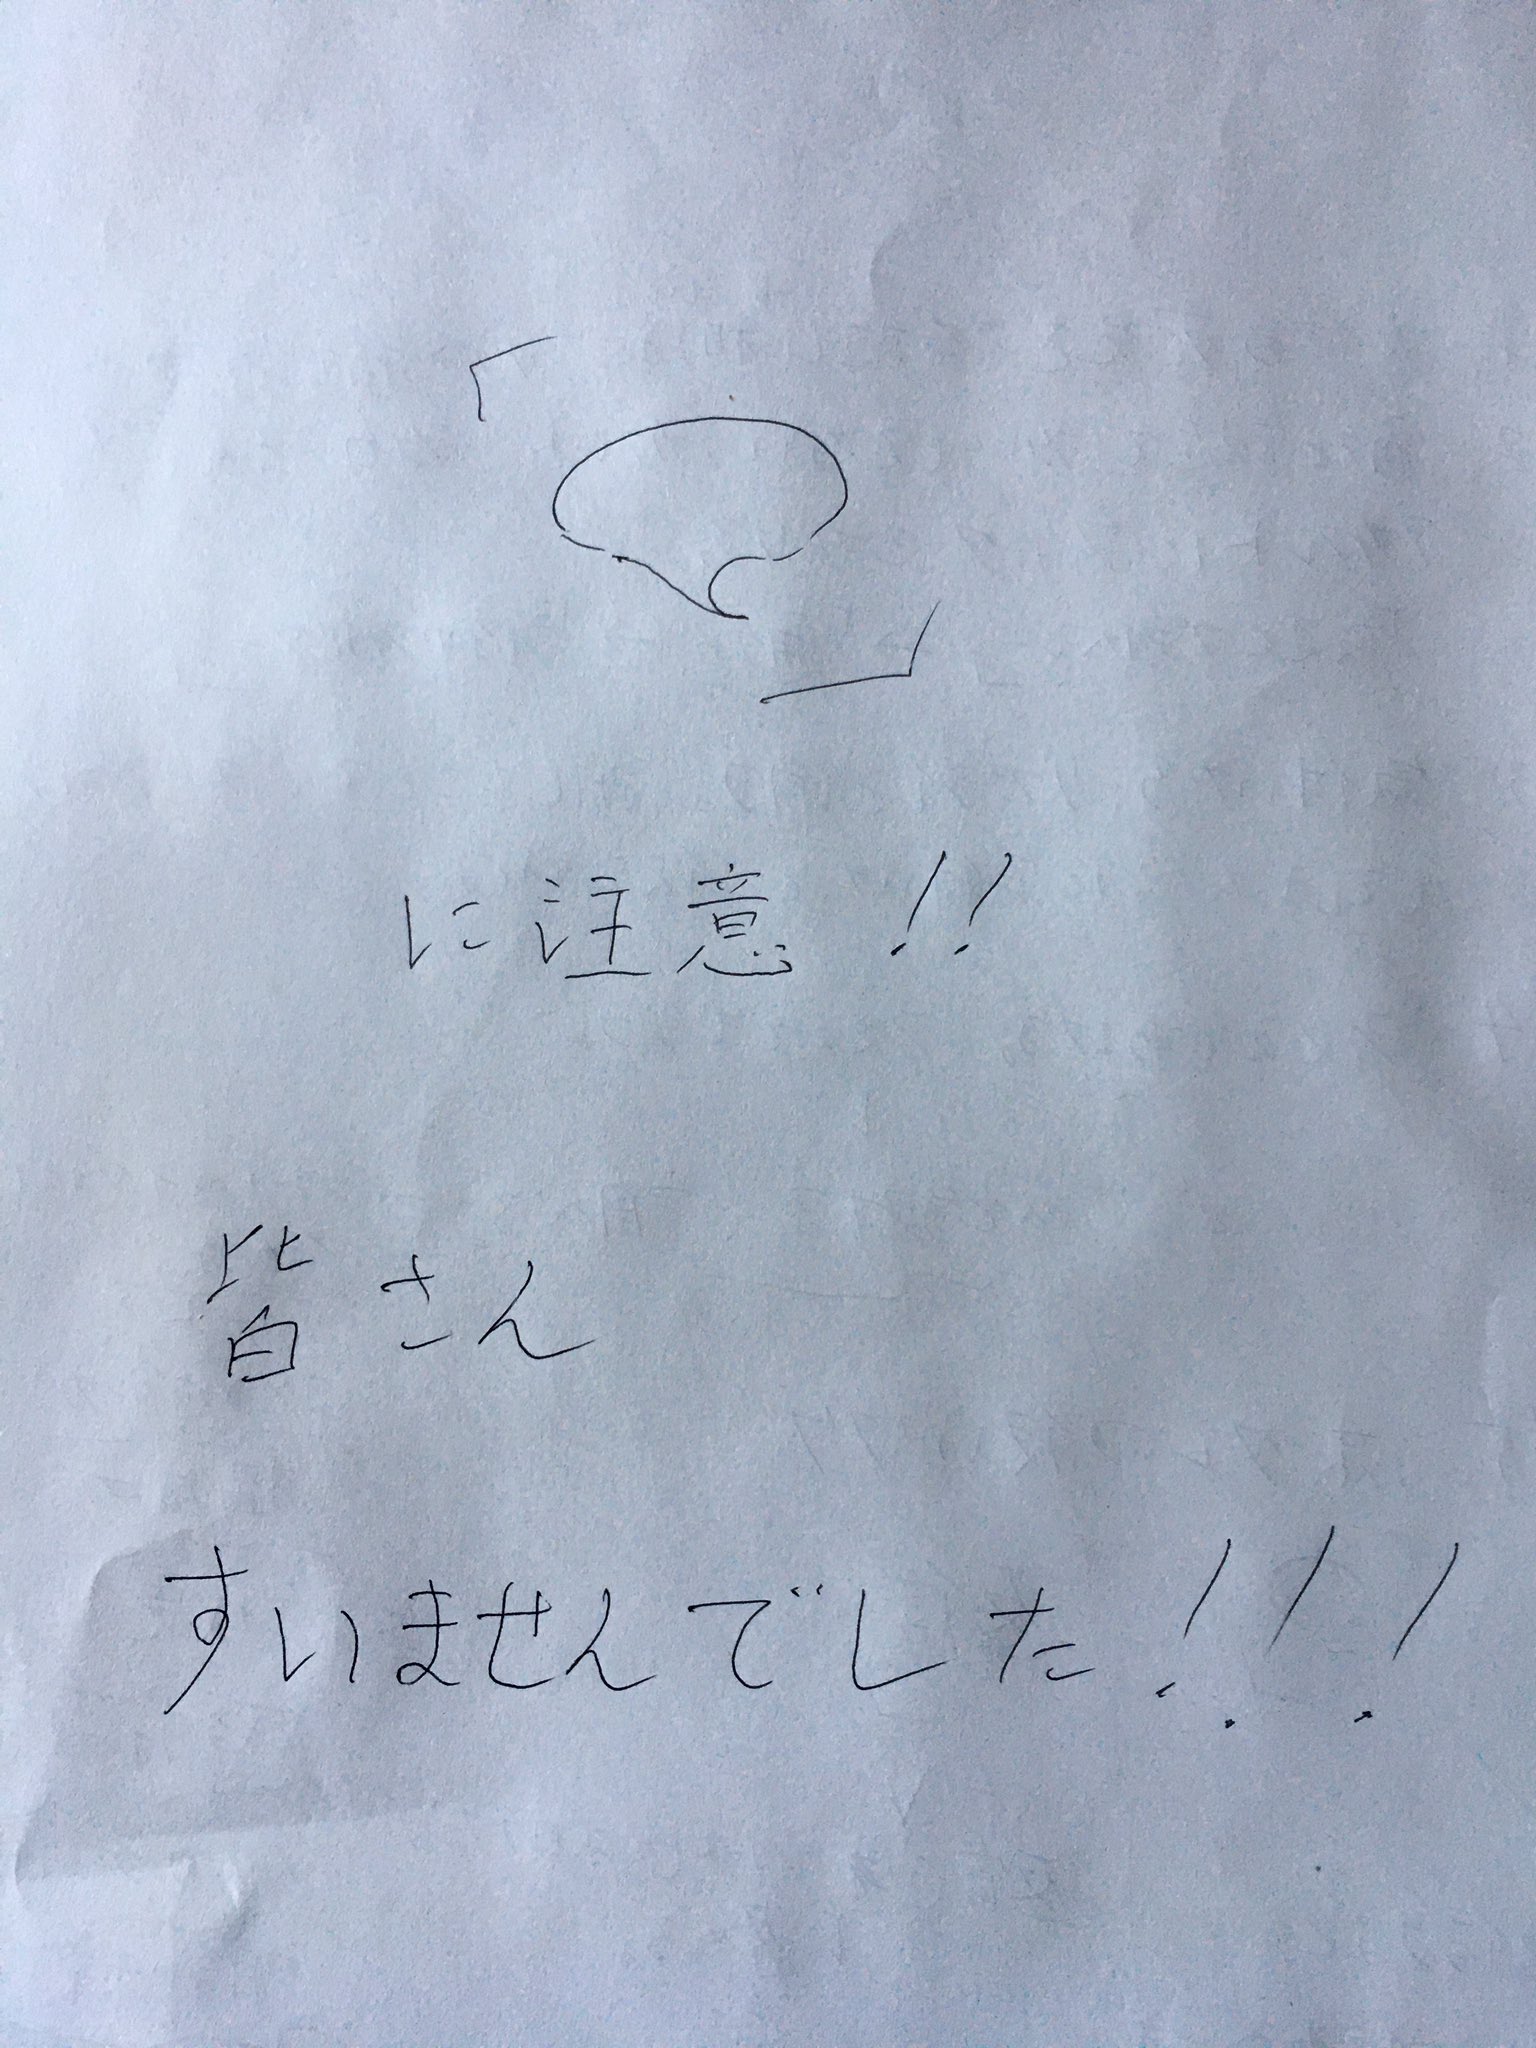 「 」
に注意!!
皆さん
すいませんでした!!!